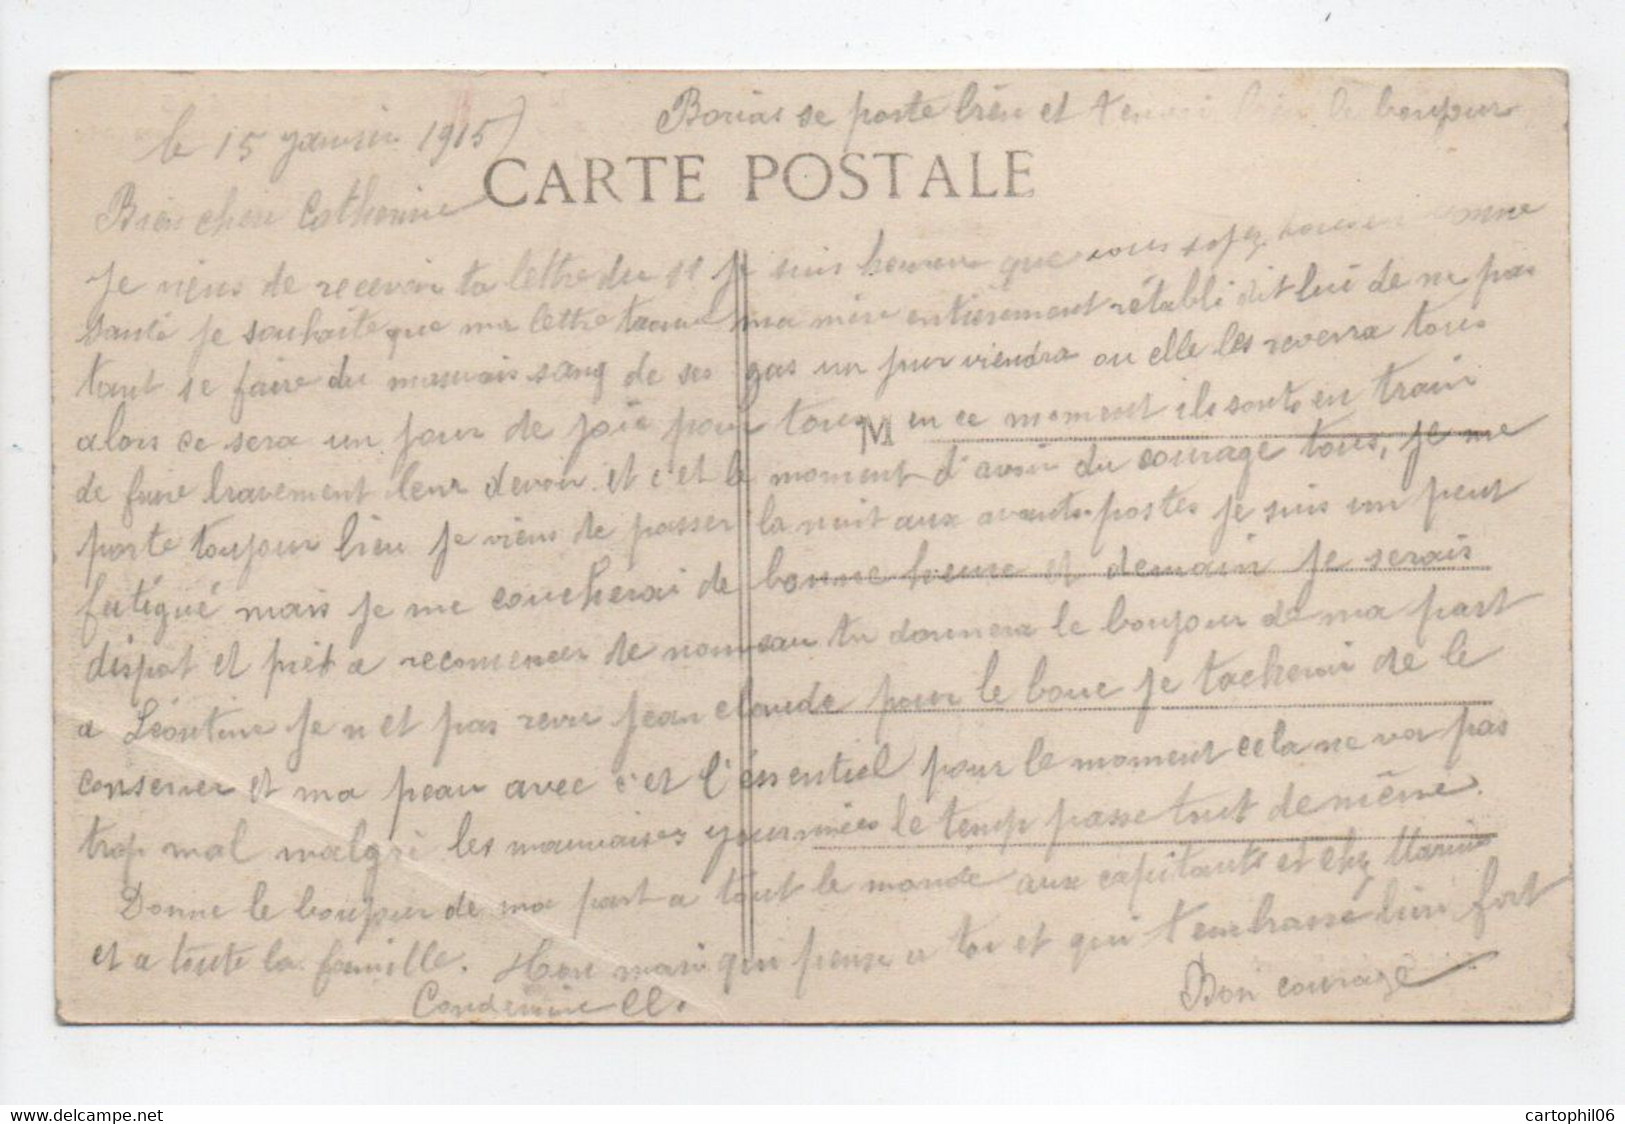 Borias se porte bien et t'envoi bien le bonjour
le 15 janvier 1915
CARTE POSTALE
Bien chere Catherine
Je viens de recevoir ta lettre du 11 je suis heureux que vous soyez tous en bonne
santé je souhaite que ma lettre trouve ma mère entierement rétabli dit lui de ne pas
tant se faire du mauvais sang de ses gas un jour viendra ou elle les reverra tous
alors ce sera un jour de joie pour tous en ce moment ils sont en train
M
de faire bravement leur devoir et c'et le moment d'avoir du courage tous, je me
porte toujour bien je viens de passer la nuit aux avants-postes je suis un peut
fatigué mais je me coucherai de bonne heure et demain je serais
dispot et prêt a recomencer de nouveau tu donnera le bonjour de ma part
a Léontine je n'et pas revu jean claude pour le bouc je tacherai de le
conserver et ma peau avec c'et l'éssentiel pour le moment cela ne va pas
trop mal malgré les mauvaises journées le temp passe tout de même.
Donne le bonjour de ma part a tout le monde aux capitants et chez Marius
et a toute la famille. Ton mari qui pense a toi et qui t'embrasse bien fort
Condemine Cl. Bon courage
cartophil06